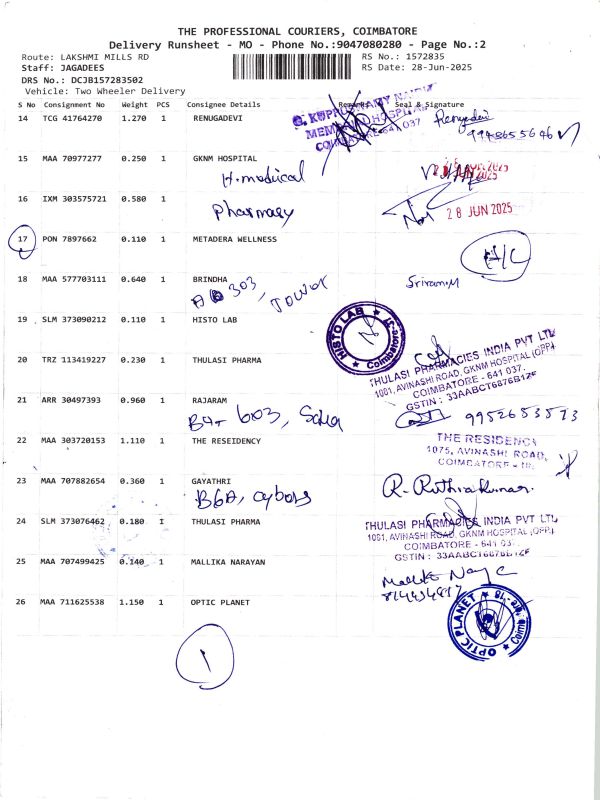 THE PROFESSIONAL COURIERS, COIMBATORE
Delivery Runsheet - MO - Phone No.:9047080280 - Page No.:2
Route: LAKSHMI MILLS RD
RS No.: 1572835
Staff: JAGADEES
RS Date: 28-Jun-2025
DRS No.: DCJB157283502
Vehicle: Two Wheeler Delivery
S No Consignment No Weight PCS Consignee Details Remarks Seal & Signature
14 TCG 41764270 1.270 1 RENUGADEVI
G. KUPPUSWAMY NAIDU
MEMORIAL HOSPITAL
COIMBATORE-641 037
Renugadevi
9948655646
15 MAA 70977277 0.250 1 GKNM HOSPITAL
H.medical
16 IXM 303575721 0.580 1
Pharmacy
28 JUN 2025
17 PON 7897662 0.110 1 METADERA WELLNESS
18 MAA 577703111 0.640 1 BRINDHA
303, Tower
Sriram.M
19 SLM 373090212 0.110 1 HISTO LAB
HISTO LAB
Coimbatore-37
20 TRZ 113419227 0.230 1 THULASI PHARMA
THULASI PHARMACIES INDIA PVT LTD
1081, AVINASHI ROAD, GKNM HOSPITAL (OPP.)
COIMBATORE - 641 037.
GSTIN : 33AABCT6876B1ZF
21 ARR 30497393 0.960 1 RAJARAM
603,
9952653573
22 MAA 303720153 1.110 1 THE RESEIDENCY
THE RESIDENCY
1075, AVINASHI ROAD,
COIMBATORE - 18.
23 MAA 707882654 0.360 1 GAYATHRI
B6A, cybors
R. Ruthra kumar.
24 SLM 373076462 0.180 1 THULASI PHARMA
THULASI PHARMACIES INDIA PVT LTD
1081, AVINASHI ROAD, GKNM HOSPITAL (OPP.)
COIMBATORE - 641 037.
GSTIN : 33AABCT6876B1ZF
25 MAA 707499425 0.140 1 MALLIKA NARAYAN
26 MAA 711625538 1.150 1 OPTIC PLANET
OPTIC PLANET
1